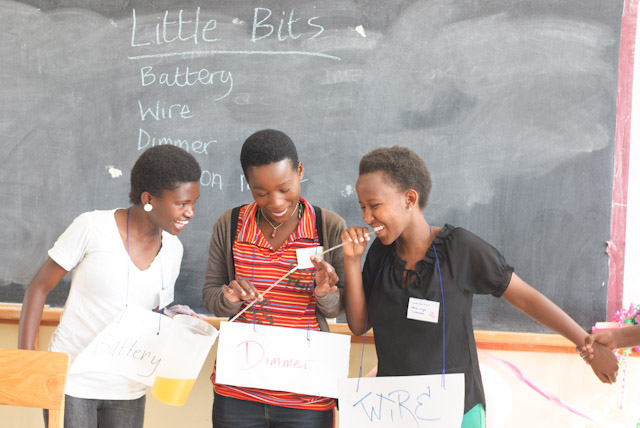 Little Bits
Battery
Wire
Dimmer
Battery
Dimmer
WIRE